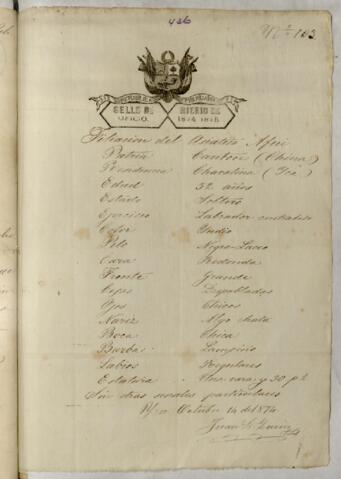 486
Nº 103
SELLO DE OFICIO.
BIENIO DE 1874 1875
Filiacion del Asiático Afui
Patria Canton (China)
Residencia (Ica)
Edad 32 años
Estado Soltero
Ejercicio Labrador contratado
Color Indio
Pelo Negro-Lacio
Cara Redonda
Frente Grande
Cejas Despobladas
Ojos Chicos
Nariz Algo chata
Boca Chica
Barba Lampiño
Labios Regulares
Estatura Una vara y 30 p.
Sin otras señales particulares
Octubre 14 de 1874
Juan